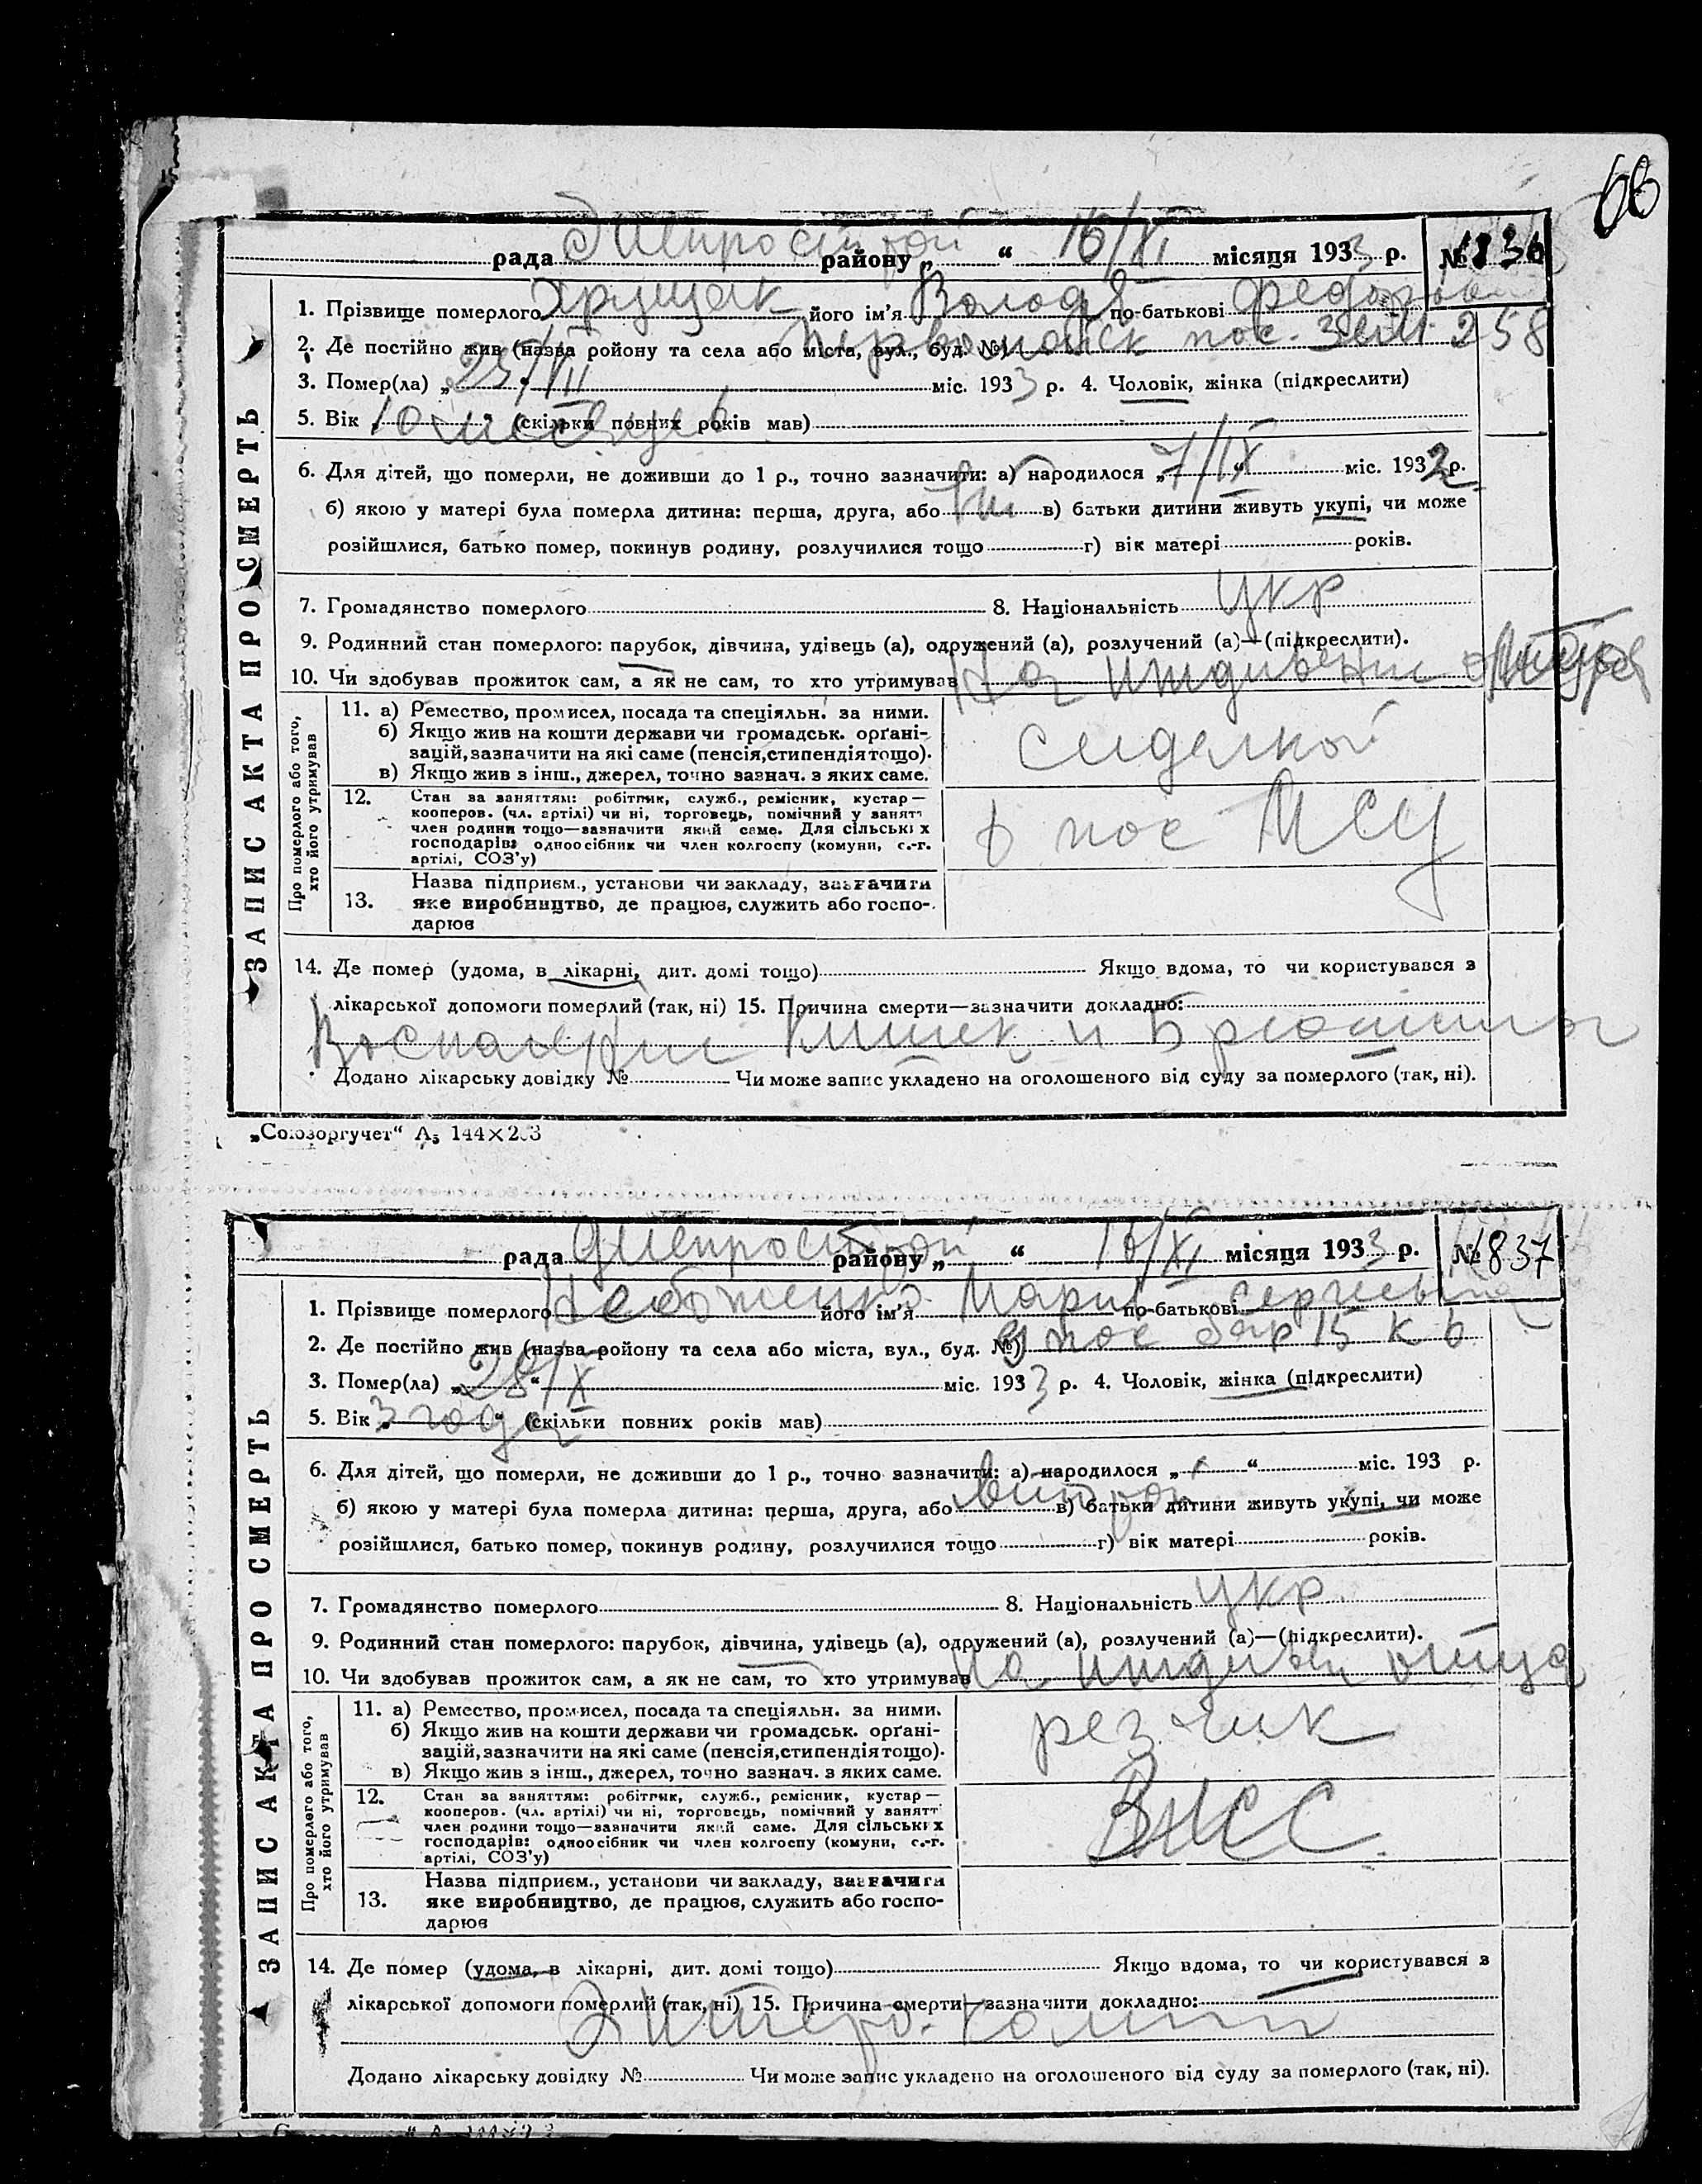 66
рада Днепрострой району „ “ 16/XI місяця 1933 р. № 1836
1. Прізвище померлого Хрущак його ім'я Володя по-батькові Федоров
2. Де постійно жив (назва ройону та села або міста, вул., буд. №) Первомайск пос. 258
3. Помер(ла) „ 25/VII міс. 1933 р. 4. Чоловік, жінка (підкреслити)
5. Вік 10 месяцев (скільки повних років мав)
6. Для дітей, що померли, не доживши до 1 р., точно зазначити: а) народилося „ 7/IX “ міс. 1932 р.
б) якою у матері була померла дитина: перша, друга, або в) батьки дитини живуть укупі, чи може
розійшлися, батько помер, покинув родину, розлучилися тощо г) вік матері років.
7. Громадянство померлого 8. Національність укр
9. Родинний стан померлого: парубок, дівчина, удівець (а), одружений (а), розлучений (а)—(підкреслити).
10. Чи здобував прожиток сам, а як не сам, то хто утримував На иждивении
ЗАПИС АКТА ПРО СМЕРТЬ
Про померлого або того,
хто його утримував
11. а) Ремество, промисел, посада та спеціяльн. за ними.
б) Якщо жив на кошти держави чи громадськ. орґані-
зацій, зазначити на які саме (пенсія, стипендія тощо).
в) Якщо жив з інш., джерел, точно зазнач. з яких саме.
сиделкой
12. Стан за заняттям: робітник, служб., ремісник, кустар—
кооперов. (чл. артілі) чи ні, торговець, помічний у занятт
член родини тощо—зазначити який саме. Для сільських
господарів: одноосібник чи член колгоспу (комуни, с.-г.
артілі, СОЗ'у)
6 пос МСЧ
13. Назва підприєм., установи чи закладу, зазначити
яке виробництво, де працює, служить або госпо-
дарює
14. Де помер (удома, в лікарні, дит. домі тощо) Якщо вдома, то чи користувався з
лікарської допомоги померлий (так, ні) 15. Причина смерти—зазначити докладно:
Воспаление кишек и брюшины
Додано лікарську довідку № Чи може запис укладено на оголошеного від суду за померлого (так, ні).
„Союзоргучет“ А5 144×203
рада Днепрострой району „ “ 16/XI місяця 1933 р. № 1837
1. Прізвище померлого Небоженко його ім'я Мария по-батькові Сергеевна
2. Де постійно жив (назва ройону та села або міста, вул., буд. №) пос бар 15 к 6
3. Помер(ла) „ 28/X “ міс. 1933 р. 4. Чоловік, жінка (підкреслити)
5. Вік 3 года (скільки повних років мав)
6. Для дітей, що померли, не доживши до 1 р., точно зазначити: а) народилося „ “ міс. 193 р.
б) якою у матері була померла дитина: перша, друга, або второй в) батьки дитини живуть укупі, чи може
розійшлися, батько помер, покинув родину, розлучилися тощо г) вік матері років.
7. Громадянство померлого 8. Національність укр
9. Родинний стан померлого: парубок, дівчина, удівець (а), одружений (а), розлучений (а)—(підкреслити).
10. Чи здобував прожиток сам, а як не сам, то хто утримував на иждивен отца
ЗАПИС АКТА ПРО СМЕРТЬ
Про померлого або того,
хто його утримував
11. а) Ремество, промисел, посада та спеціяльн. за ними.
б) Якщо жив на кошти держави чи громадськ. орґані-
зацій, зазначити на які саме (пенсія, стипендія тощо).
в) Якщо жив з інш., джерел, точно зазнач. з яких саме.
резчик
12. Стан за заняттям: робітник, служб., ремісник, кустар—
кооперов. (чл. артілі) чи ні, торговець, помічний у занятт
член родини тощо—зазначити який саме. Для сільських
господарів: одноосібник чи член колгоспу (комуни, с.-г.
артілі, СОЗ'у)
13. Назва підприєм., установи чи закладу, зазначити
яке виробництво, де працює, служить або госпо-
дарює
14. Де помер (удома, в лікарні, дит. домі тощо) Якщо вдома, то чи користувався з
лікарської допомоги померлий (так, ні) 15. Причина смерти—зазначити докладно:
Энтеро-колит
Додано лікарську довідку № Чи може запис укладено на оголошеного від суду за померлого (так, ні).